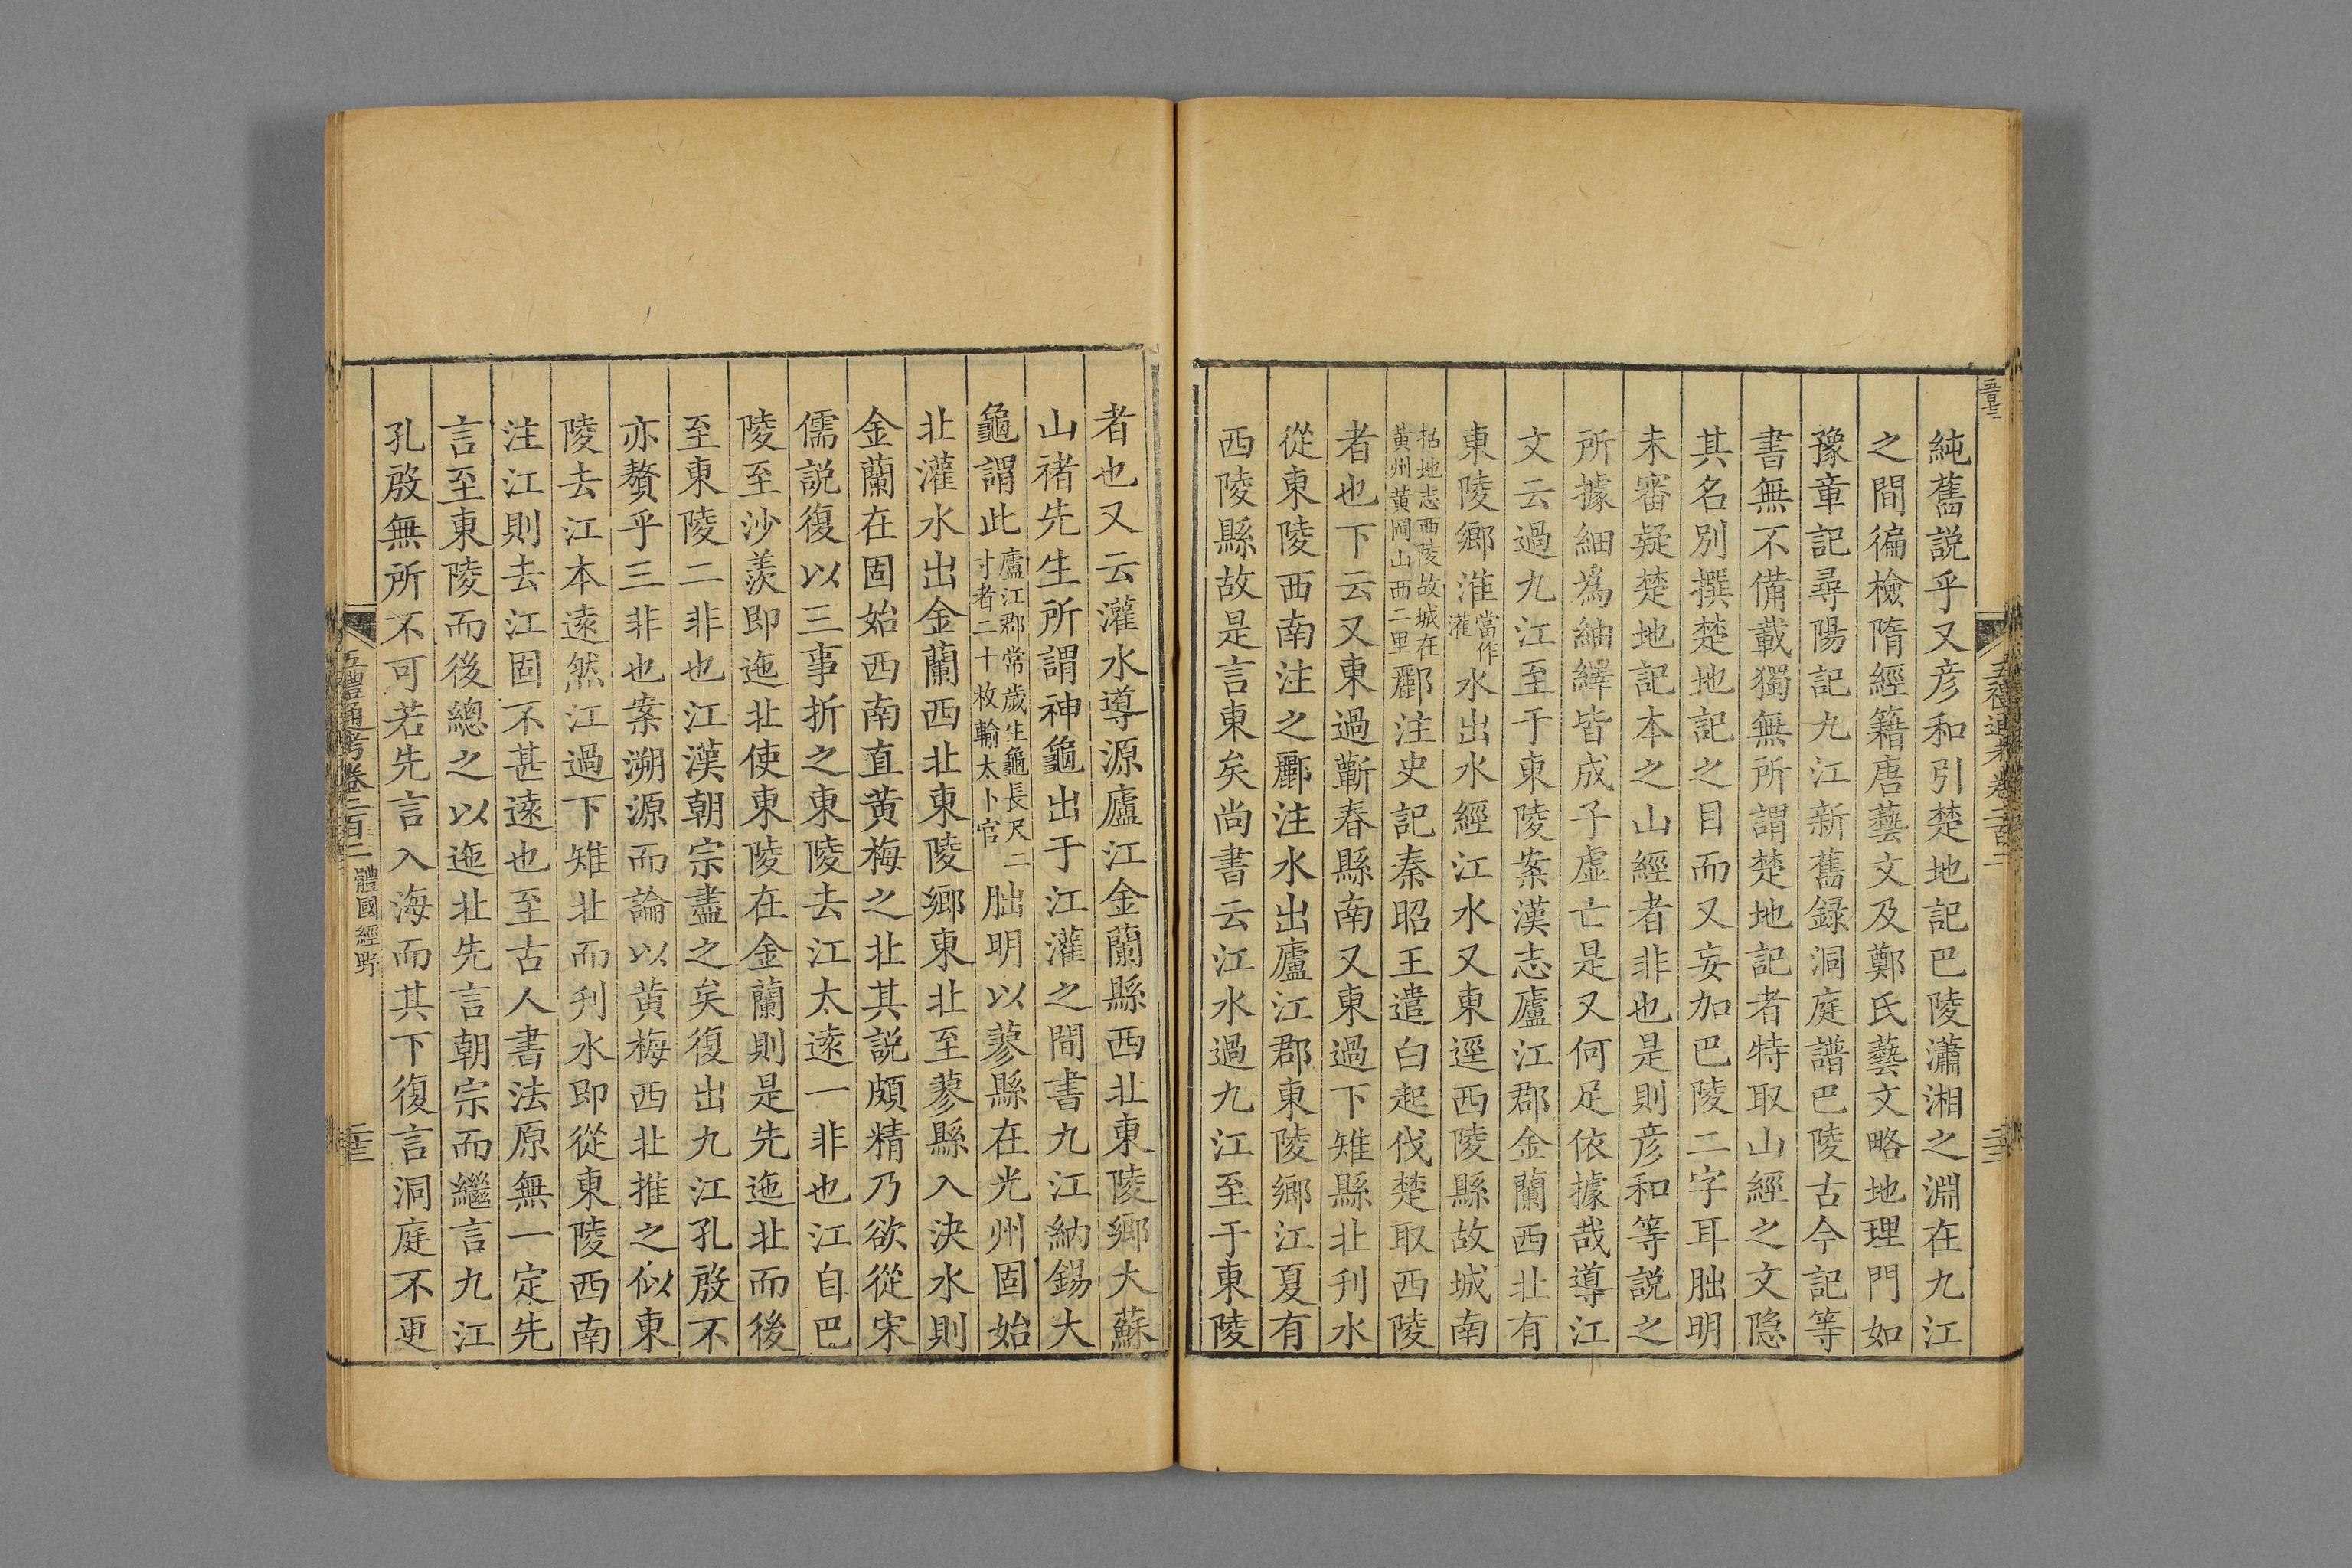 純舊説乎又彦和引楚地記巴陵瀟湘之淵在九江
之間徧檢隋經籍唐藝文及鄭氏藝文略地理門如
豫章記尋陽記九江新舊録洞庭譜巴陵古今記等
書無不備載獨無所謂楚地記者特取山經之文隐
其名別撰楚地記之目而又妄加巴陵二字耳朏明
未審疑楚地記本之山經者非也是則彦和等説之
所據細爲紬繹皆成子虛亡是又何足依據哉導江
文云過九江至于東陵案漢志廬江郡金蘭西北有
東陵鄉淮當作灌水出水經江水又東逕西陵縣故城南
括地志西陵故城在黃州黃岡山西二里酈注史記秦昭王遣白起伐楚取西陵
者也下云又東過蘄春縣南又東過下雉縣北刋水
從東陵西南注之酈注水出廬江郡東陵鄉江夏有
西陵縣故是言東矣尚書云江水過九江至于東陵
者也又云灌水導源廬江金蘭縣西北東陵鄉大蘇
山禇先生所謂神龜出于江灌之間書九江納錫大
龜謂此廬江郡常歲生龜長尺二寸者二十枚輸太卜官朏明以蓼縣在光州固始
北灌水出金蘭西北東陵鄉東北至蓼縣入決水則
金蘭在固始西南直黃梅之北其説頗精乃欲從宋
儒説復以三事折之東陵去江太遠一非也江自巴
陵至沙羡即迤北使東陵在金蘭則是先迤北而後
至東陵二非也江漢朝宗盡之矣復出九江孔殷不
亦贅乎三非也案溯源而論以黃梅西北推之似東
陵去江本遠然江過下雉北而刋水即從東陵西南
注江則去江固不甚遠也至古人書法原無一定先
言至東陵而後總之以迤北先言朝宗而繼言九江
孔殷無所不可若先言入海而其下復言洞庭不更
五禮通考卷二百二 體國經野